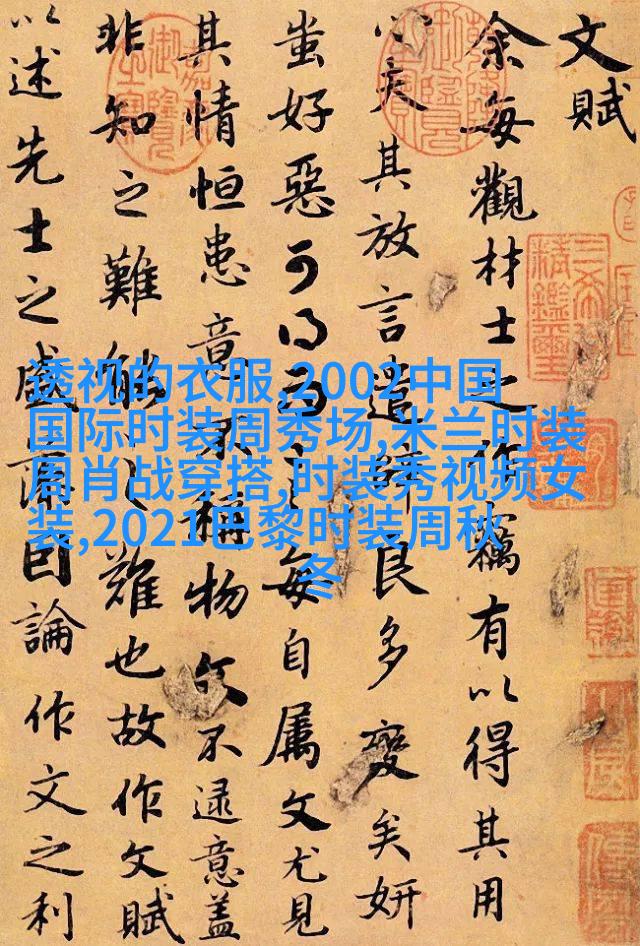 文賦
余每觀材士之作竊有以得其用
心夫其放言遣辭良多變矣妍
蚩好惡可得而言每自属文尤見
其情恒患意不稱物文不逮意蓋
非知之難能之難也故作文賦
以述先士之盛藻因論作文之利
透视的衣服,2002中国
国际时装周秀场,米兰时装
周肖战穿搭,时装秀视频女
装,2021巴黎时装周秋
冬